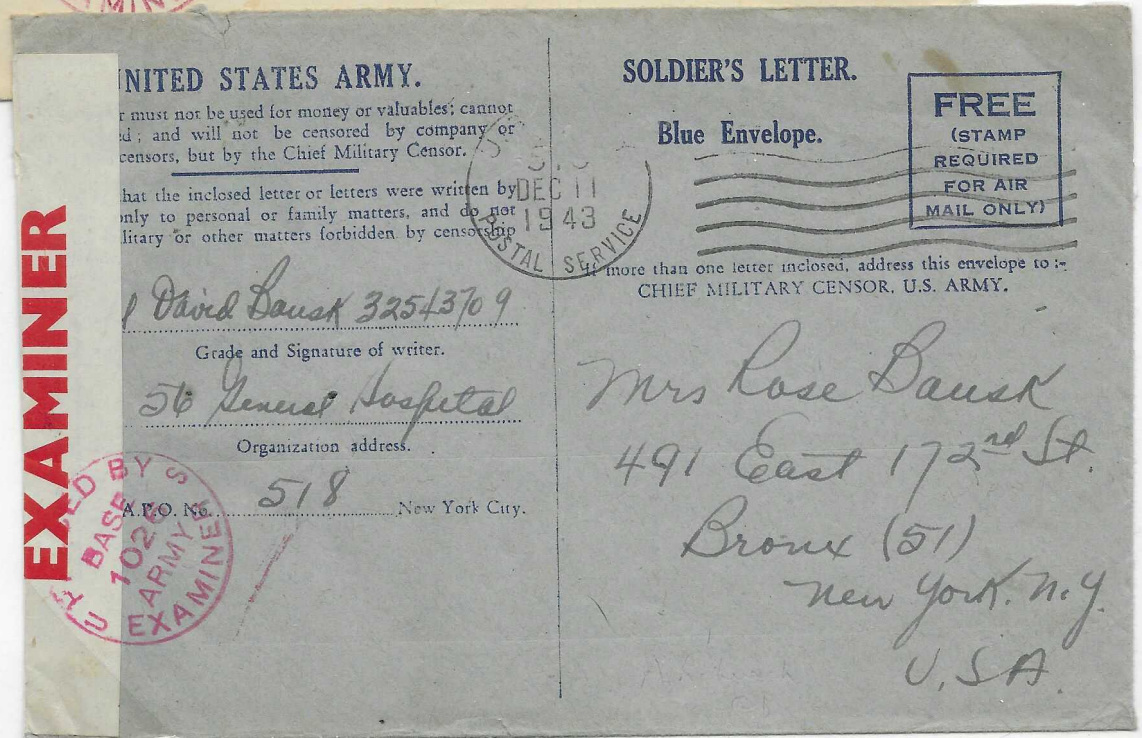 UNITED STATES ARMY.
r must not be used for money or valuables; cannot
ed; and will not be censored by company or
censors, but by the Chief Military Censor.
that the inclosed letter or letters were written by
only to personal or family matters, and do not
ilitary or other matters forbidden by censorship
l David Bausk 32543709
Grade and Signature of writer.
56 General Hospital
Organization address.
A.P.O. No. 518 New York City.
EXAMINER
ED BY
BASE
1026
ARMY
EXAMINER
U S
SOLDIER'S LETTER.
Blue Envelope.
FREE
(STAMP
REQUIRED
FOR AIR
MAIL ONLY)
DEC 11
1943
POSTAL SERVICE
If more than one letter inclosed, address this envelope to :-
CHIEF MILITARY CENSOR, U.S. ARMY.
Mrs Rose Bausk
491 East 172nd St.
Bronx (51)
New York. N.Y.
U.S.A.